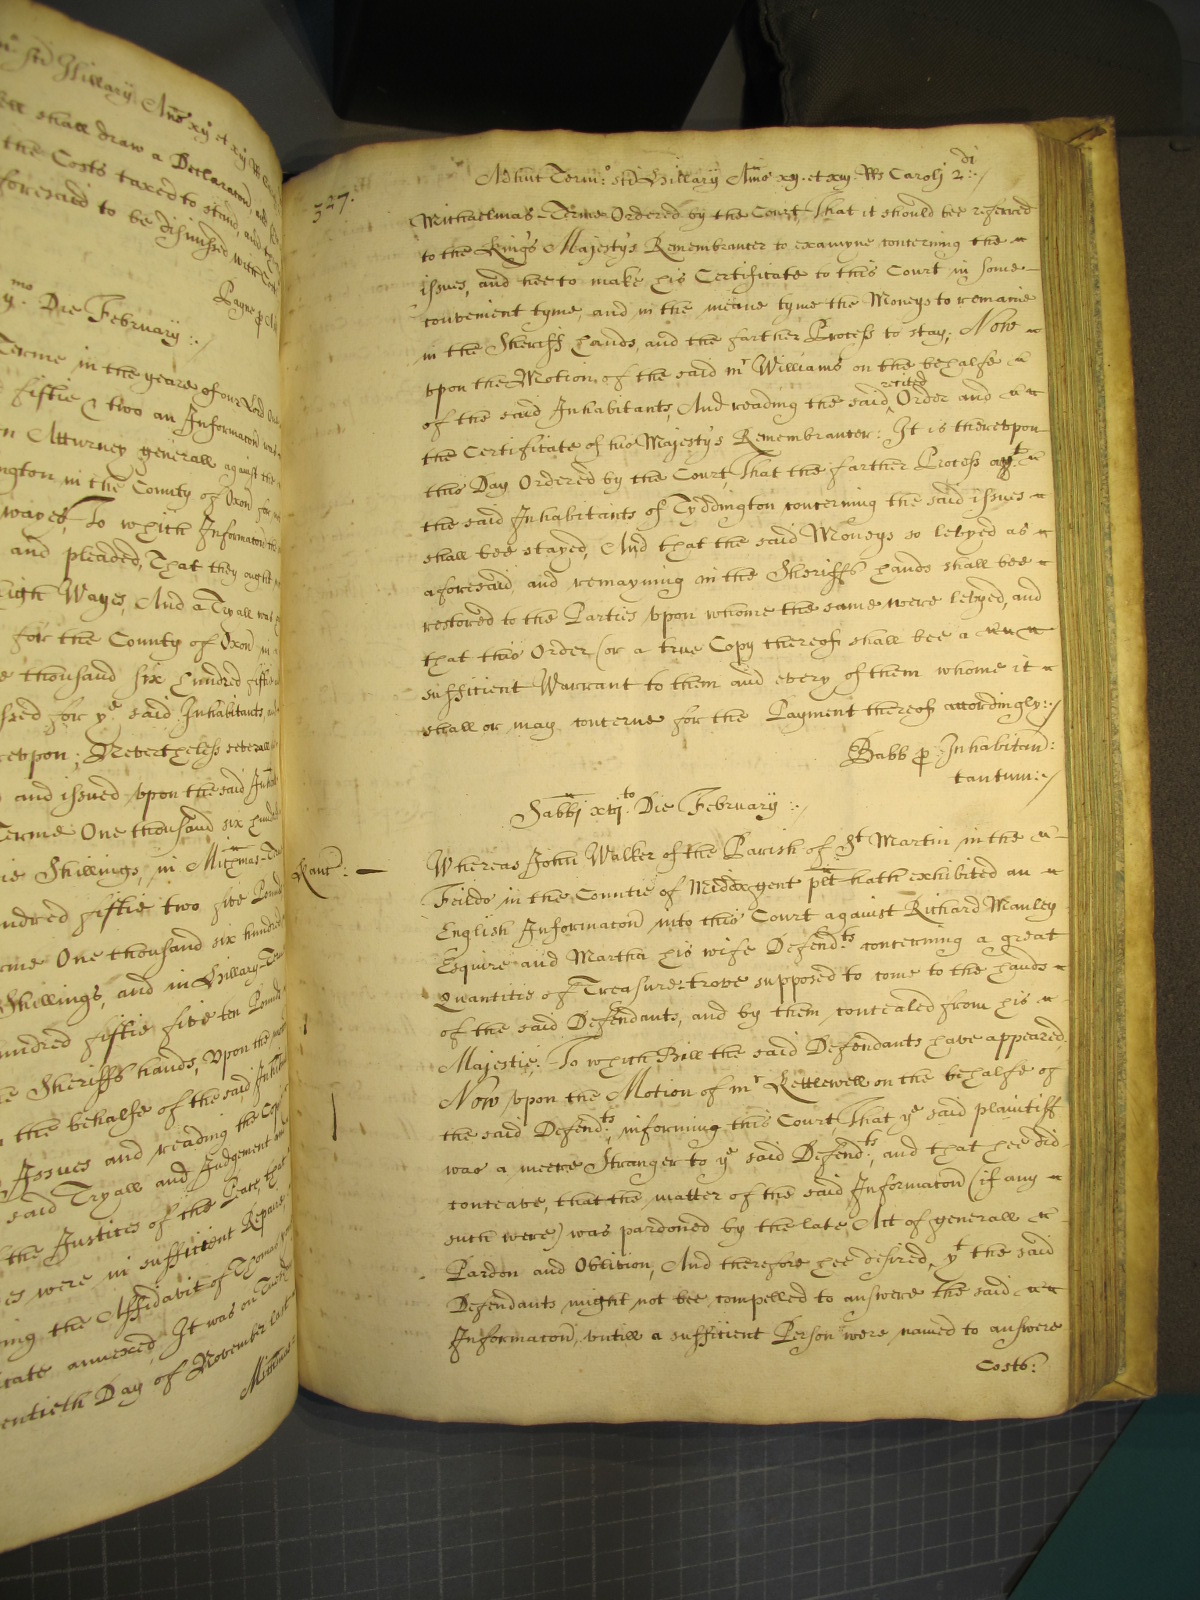 Hillary Anno xij et xiij
shall draw a Declaracon, and
the Costs taxed to stand, and
foresaid to be dismissed with Costs
Payne p
mo Die February :/
Terme in the yeare of our Lord One
fiftie & two an Informacon was
Atturney generall against the
ington in the County of Oxon for
wayes, To which Informacon the
and pleaded, That they ought
High Wayes, And a Tryall was
for the County of Oxon in
thousand six hundred fiftie
ssed for ye said Inhabitants
revpon; Nevertheless severall
and issued vpon the said Inhab
Terme One thousand six hund
Shillings, in Michmas-Te
undred fiftie two five Pound
rme One thousand six hundred
Shillings, and in Hillary-Ter
undred fiftie five ten Pounds
Sheriffs hands, Vpon the
the behalfe of the said Inhabit
Issues and reading the Cop
said Tryall and Judgement
the Justices of the Peace, that
es were in sufficient Repaire,
ing the Affidavit of Thomas
icate annexed, It was on
entieth Day of November last
Michmas
327.
Adhuc Termo: sci Hillary Anno xij. et xiij. Rs Caroli 2di :/
Michaelmas-Terme Ordered by the Court, That it should bee referred
to the Kings Majestys Remembrancer to examyne concerning the
issues, and hee to make his Certificate to this Court in some
convenient tyme, and in the meane tyme the Moneys to remaine
in the Sheriffs hands, and the farther Process to stay; Now
vpon the Motion of the said mr Williams on the behalfe
of the said Inhabitants, And reading the said recited Order and
the Certificate of his Majestys Remembrancer: It is therevpon
this Day Ordered by the Court That the farther Process agt
the said Inhabitants of Tyddington concerning the said issues
shall bee stayed, And that the said Moneys so levyed as
aforesaid, and remayning in the Sheriffs hands shall bee
restored to the Parties vpon whome the same were levyed, and
that this Order (or a true Copy thereof) shall bee a
sufficient Warrant to them and every of them whome it
shall or may concerne for the Payment thereof accordingly:/
Babb p Inhabitan:
tantum:/
Sabbi xvjto Die February :/
Kanc: Whereas John Walker of the Parish of St Martin in the
Feilds in the Countie of Middx gent plt hath exhibited an
English Informacon into this Court against Richard Manley
Esquire and Martha his wife Defendts concerning a great
Quantitie of Treasure-trove supposed to come to the hands
of the said Defendants, and by them concealed from his
Majestie; To which Bill the said Defendants have appeared,
Now vpon the Motion of mr Kettlewell on the behalfe of
the said Defendts, informing this Court That ye said plaintiff
was a meere Stranger to ye said Defendts, and that hee did
conceave, that the matter of the said Informacon (if any
such were) was pardoned by the late Act of generall
Pardon and Oblivion, And therefore hee desired, yt the said
Defendants might not bee compelled to answere the said
Informacon, vntill a sufficient Person were named to answere
Costs: